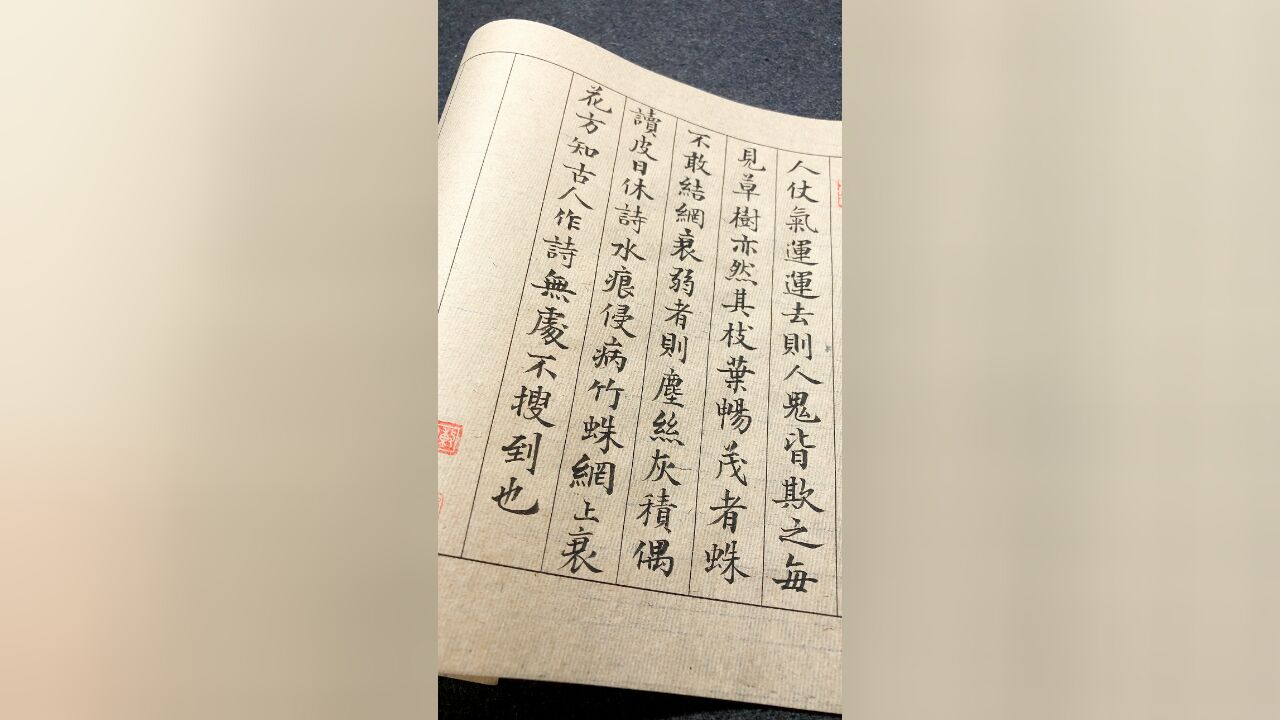 人仗氣運運去則人鬼皆欺之每
見草樹亦然其枝葉暢茂者蛛
不敢結網衰弱者則塵絲灰積偶
讀皮日休詩水痕侵病竹蛛網上衰
花方知古人作詩無處不搜到也